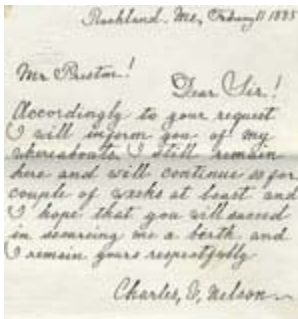 Rockland. Me, 11 1895
Mr
Dear Sir!
Accordingly to your request
I will inform you of my
whereabouts I still remain
here and will continue so for
couple of weeks at least and
I hope that you will succed
in securing me a birth and
I remain yours respectfully
Charles, Nelson